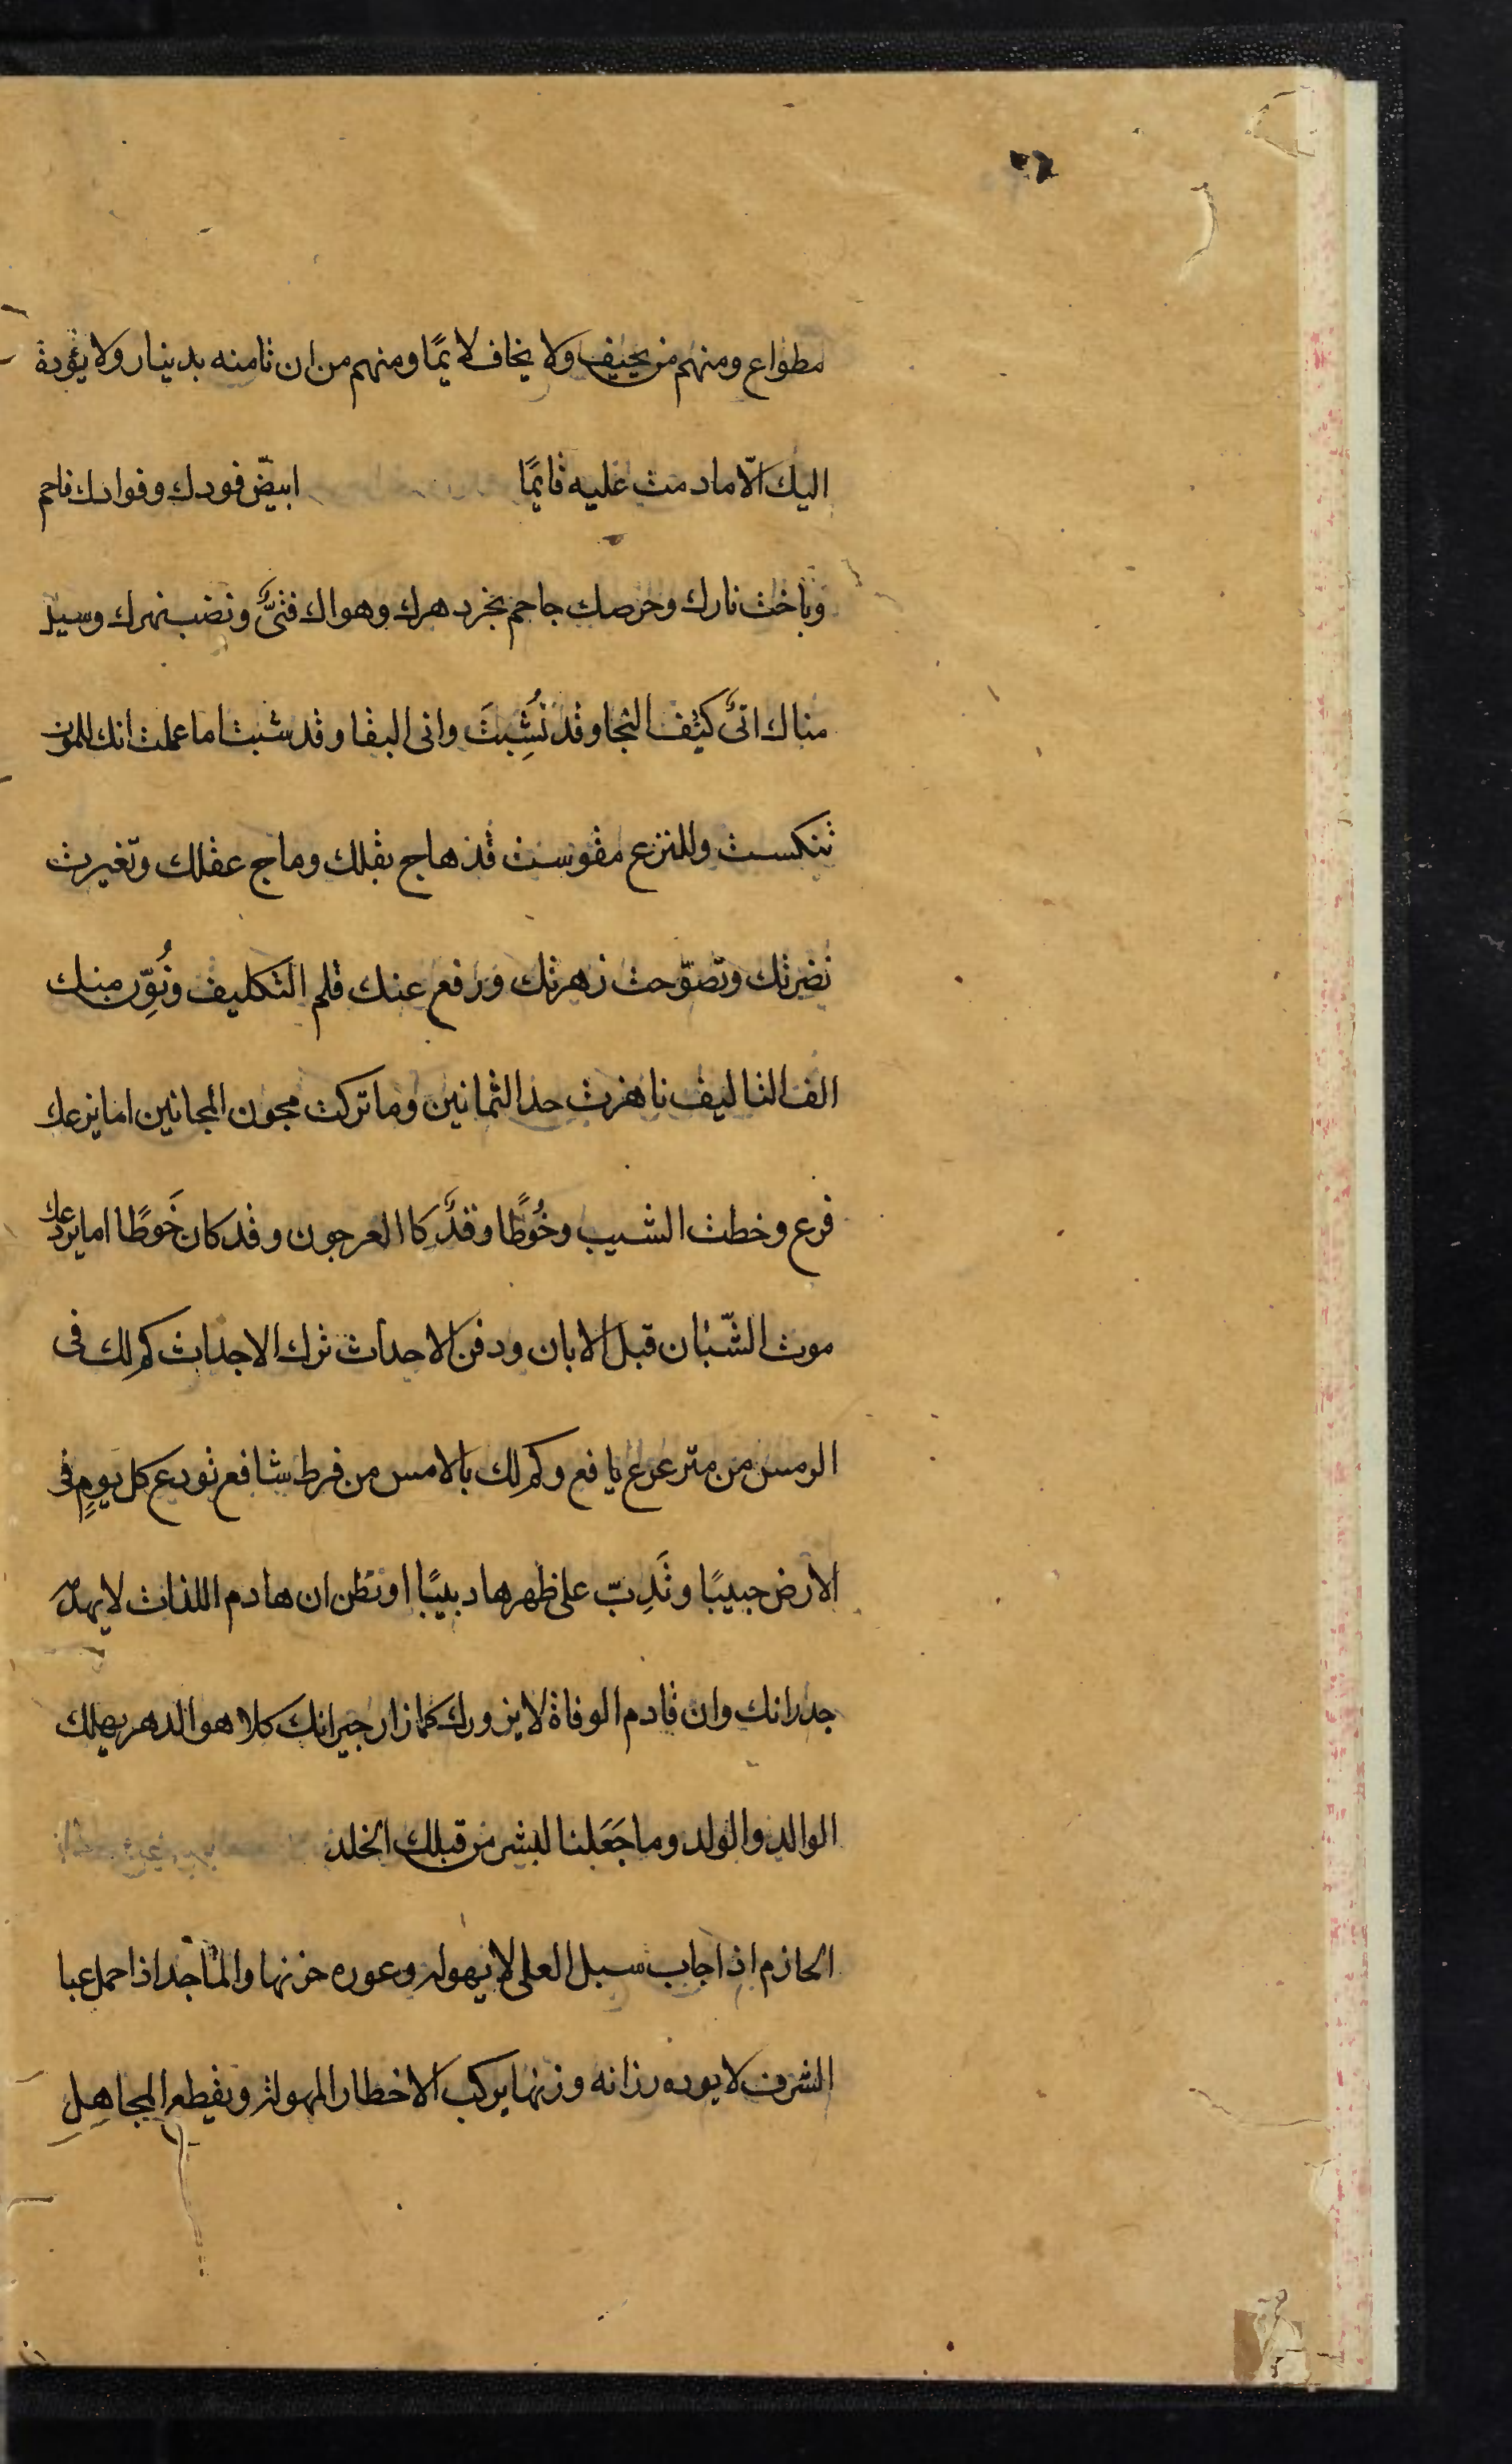 مطواع ومنهم من يحيف ولا يخاف لايمًا ومنهم من ان تامنه بدينار ولا يؤده
اليك الّا مادمت عليه قايمًا ابيضّ فودك وفوادك فاحم
وباخت نارك وحرصك جاحم نخر دهرك وهواك فتىٌّ ونضب نهرك وسيل
مناك اتىٌّ كيف النجا وقد نُشِبتَ وانى البقا وقد شبت اما علمت انك للموت
تنكست وللنزع مقوست قد هاج بقلك وماج عقلك وتغيرت
نضرتك وتصوّحت زهرتك ورفع عنك قلم التكليف ونُوِّر منبك
الف التاليف ناهزت حد الثمانين وما تركت مجون المجانين اما يزعك
فرع وخطت الشيب وخُوطًا وقدٌّ كا العرجون وقد كان خَوطًا اما يردعك
موت الشّبّان قبل الابان ودفن الاحداث ترك الاجداث كم لك فى
الرمس من مترعرع يافع وكم لك بالامس من فرط شافع تودع كل يومٍ فى
الارض حبيبًا وتَدِبّ على ظهرها دبيبًا او تظن ان هادم اللذات لا يهدّ
جدرانك وان قادم الوفاة لا يزورك كما زار جيرانك كلا هو الدهر يهلك
الوالد والولد وما جَعَلنا لبشر من قبلك الخلد
الحازم اذا جاب سبل العلى لا يهوله وعوره حزنها والماجد اذا حمل عبا
الشرف لا يوده رزانه وزنها يركب الاخطار المهوله ويقطع المجاهِلِ